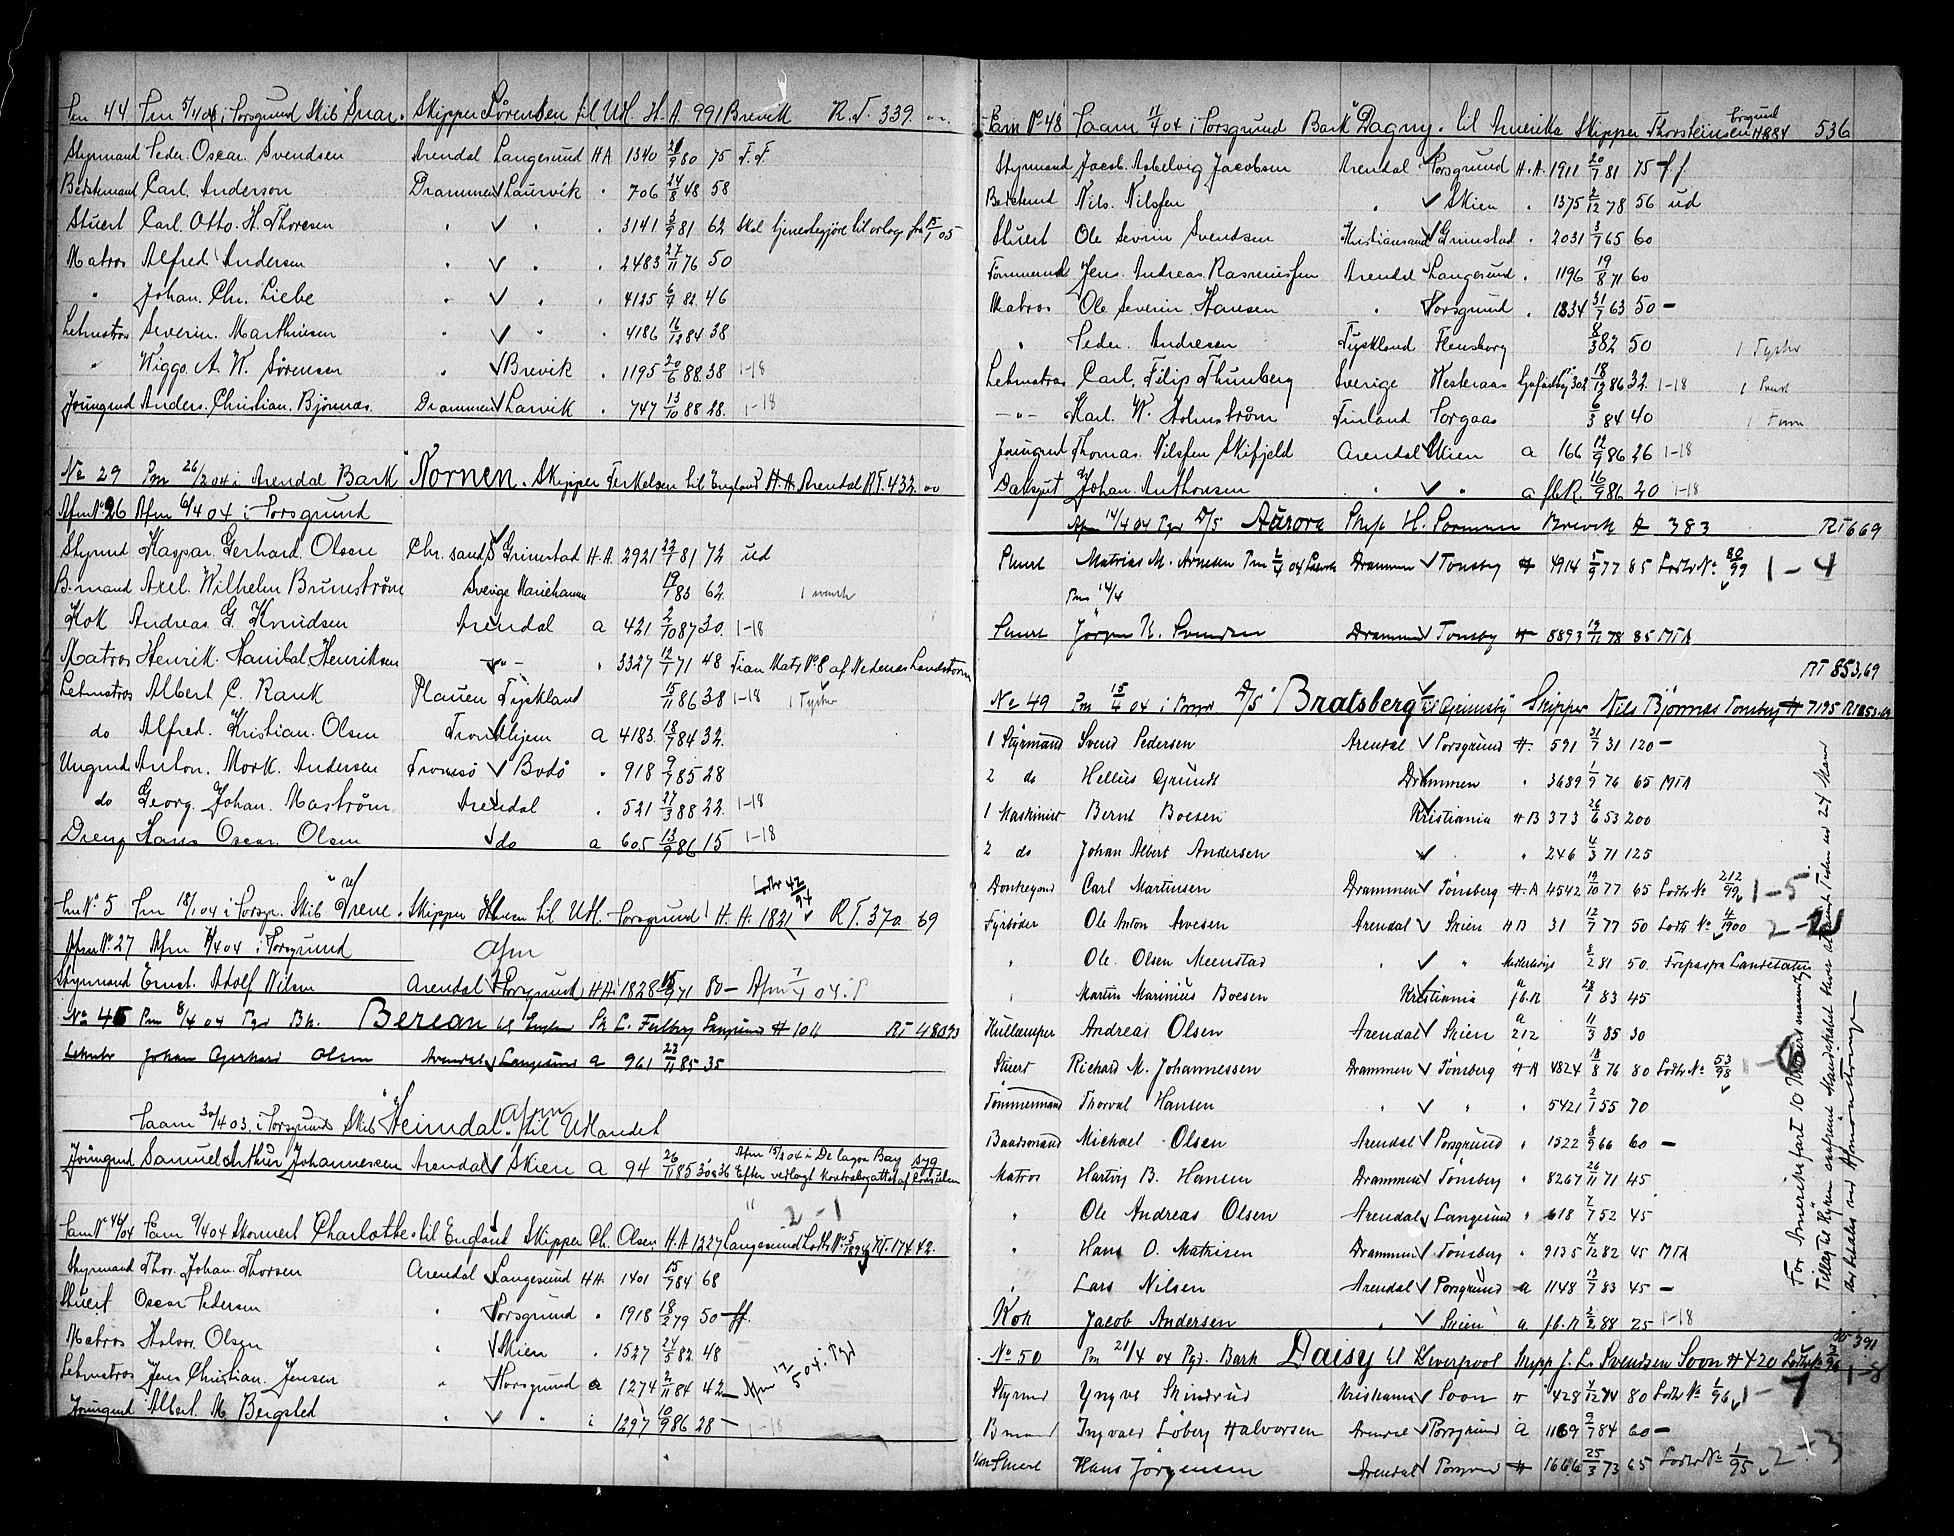 44 Pm 5/4 04 i Porsgrund Skib "Snar" Skipper Sörensen til Udl. H. A. 991 Brevik R. T. 339.
Styrmand Peder. Oscar. Svendsen Arendal Langesund H A 1340 80 75 F. F.
Bedstemand Carl Anderson Drammen Laurvik " 706 24/8 48 58
Stuert Carl. Otto. H. Thoresen " " " 3141 3/9 81 62 Skal tjenestegjöre til orlog fra 15/1 05
Matros Alfred Andersen " " " 2483 27/11 76 50
" Johan. Chr. Liebe " " " 4125 6/9 82 46
Letmatros Severin. Marthinsen " " " 4186 16/12 84 38
" Wiggo. A. W. Sörensen " Brevik " 1195 20/6 88 38 1-18
Joungmd Anders. Christian. Bjönnæs. Drammen Larvik " 747 13/10 88 28. 1-18
No 29 Pm 26/2 04 i Arendal Bark "Nornen". Skipper Terkelsen til England H. A. Arendal R T. 432.
Afm No 26 Afm 6/4 04 i Porsgrund
Styrmd Kaspar. Gerhard. Olsen Chr. sand Grimstad H. A. 2921 22/7 81 72 ud
B. mand Axel. Wilhelm Brunström Sverige Mariehamn 19/1 83 62. 1 svensk
Kok Andreas G. Knudsen Arendal a 421 2/10 87 30. 1-18
Matros Henrik. Hanibal Henriksen " " 3327 12/1 71 48 Fian Mats No 8 af Nedenæs Landstorm
Letmatros Albert C. Rank Plauen Tyskland 15/11 86 38 1-18 1 Tysker
do Alfred. Kristian. Olsen Trondhjem a 4183. 18/7 84 32.
Ungmd Anton. Mork. Andersen Tromsö Bodö " 918 9/7 85 28
do Georg. Johan. Maström Arendal " 521 27/3 88 22. 1-18
Dreng Hans Oscar. Olsen do a 605 13/9 86 15 1-18
Lodbr 42/94
Pm No. 5 Pm 18/1 04 i Porsgr. Skib "Irene". Skipper til Udl. Porsgrund H. A. 1821 R T. 370. 69
Afm No. 27 Afm 7/4 04 i Porsgrund Afm
Styrmand Ernst. Adolf Nilsen Arendal Porsgrund H A 1828 15/9 71 80 - Afm 7/4 04. P
No 45 Pm 8/4 04 Pgd Bk. Berean til England Sk L. Feilberg Langesund H 1011 RT 480,93
Letmtr Johan Gerhard Olsen Arendal Langesund a 961 22/11 85 35
Paam 30/4 03. i Porsgrund Skib "Heimdal". til Udlandet
Afm
Joungmd Samuel Arthur Johannessen Arendal Skien a 94 26/11 85 30 à 36 Afm 15/2 04 i De lagoa Bay syg
Efter vedlagt Kontraktgattest af Consulen
2-1
Pam No 46/04 Paam 9/4 04 Skonnert "Charlotte" til England Skipper Ch. Olsen H. A 1227 Langesund Lodbr. No 5/1894 RT. 174.42.
Styrmand Thor. Johan. Thorsen Arendal Langesund H A. 1401 15/9 84 68
Stuert Oscar Pedersen " Porsgrund " 1918 18/2 79 50 ff.
Matros Halvor. Olsen " Skien " 1527 24/5 82. 48
Letmatros Jens Christian. Jensen " Porsgrund a 1274 2/11 84 42 - Afm 12/5 04. i Pgd
Joungmd Albert. M. Bergsted " " i 1297 10/9 86 28 - 1-18
Pam No 48 Paam 11/4 04 i Porsgrund Bark "Dagny". til Amerika Skipper Thorsteinsen Porsgrund H. 884 536
Styrmand Jacob. Aabelvig Jacobsen Arendal Porsgrund H. A. 1911 20/7 81 75 ff
Bedstemd Nils. Nilsen " Skien " 1375 2/12 78 56 ud
Stuert Ole Severin Svendsen Kristiansand Grimstad " 2031 3/7 65 60
Tömmermd Jens. Andreas Rasmussen Arendal Langesund " 1196 19/8 71 60
Matros Ole Severin Hansen " Porsgrund " 1834 31/7 63 50 -
" Peder. Andresen Tyskland Flensborg 8/3 82 50 1 Tysker
Letmatros Carl. Filip Thunberg Sverige Westeraas 302 18/12 86 32. 1-18 1 Svensk
-"- Karl. W. Holmström Finland Borgaa 6/3 84 40 1 Finne
Joungmd Thomas. Nilsen Skifjeld Arendal Skien a 166 12/9 86 26 1-18
Dæksgut Johan. Anthonsen " " a fl. R. 16/9 86 20 1-18
Afm 14/4 04 Pgd D/S Aurora Skip. H. Sörensen Brevik A 383 RT 669
Stuert Mathias M. Arnesen Pm 04 Drammen Tönsberg H 4914 5/9 77 85 Lodbr No 80/99 1-4
Pm 14/4
Stuert Jörgen K. Svendsen Drammen Tönsberg H 8893 19/11 78 85 MTA
RT 853,69
No 49 Pm 15/4 04 i Porsgr D/S "Bratsberg" til Grimsby Skipper Nils Bjönnæs Tönsberg H 7195 RT 853.69
1 Styrmand Svend Pedersen Arendal Porsgrund H. 591 31/7 31 120 -
2 do Hellius Grundt Drammen " 3689 1/7 76 65 MTA
1 Maskinist Bernt Boesen Kristiania H B 373 26/6 53 200
2 do Johan Albert Andersen " " 246 4/3 71 125
Donkeymd Carl Martinsen Drammen Tönsberg H. A 4542 19/10 77 65 Lodbr No 212/99 1-5
Fyrböder Ole Anton Arvesen Arendal Skien H B 31 12/7 77 50 Lodbr No 4/1900 2-2
" Ole. Olsen Meenstad " " Midlertidigt 8/2 81 50.
" Martin Marinius Boesen Kristiania a fl. R 28/1 83 45
Kullemper Andreas Olsen Arendal Skien a 212 11/3 85 30
Stuert Richard M. Johannessen Drammen Tönsberg H A 4824 18/8 76 80 Lodbr No 53/98 1-6
Tömmermand Thorval Hansen " " " 5421 2/1 55 70
Baadsmand Michael Olsen Arendal Porsgrund " 1522 8/9 66 60 -
Matros Hartvig B. Hansen Drammen Tönsberg " 8267 26/11 71 45
" Ole Andreas Olsen Arendal Langesund " 618 7/7 52 45
" Hans O. Mathisen Drammen Tönsberg " 9135 14/12 82 45 MTA
" Lars Nilsen Arendal Porsgrund a 1148 13/7 83 45 -
Kok Jacob Andersen " Skien a fl. R 2/2 88 25 1-18
For Amerikafart 10 Kroers maanedlig
Tillæg til Hyren
aar betales ved Afmönstringen
No 50 Pm 21/4 04 Pgd. Bark Daisy til Liverpool Skipp J. L. Svendsen Soon H 420 391 1-8
Styrmd Yngve Skinsrud Kristiania Soon H 428 4/12 74 80 Lodbr No 1/96 1-7
B mand Ingvald Löberg Halvorsen Arendal Porsgrund a 1169 9/7 84 60 -
Stuert Hans Jörgensen Arendal Porsgrund H 1666 25/3 73 65 Lodbr No 1/95 2-3